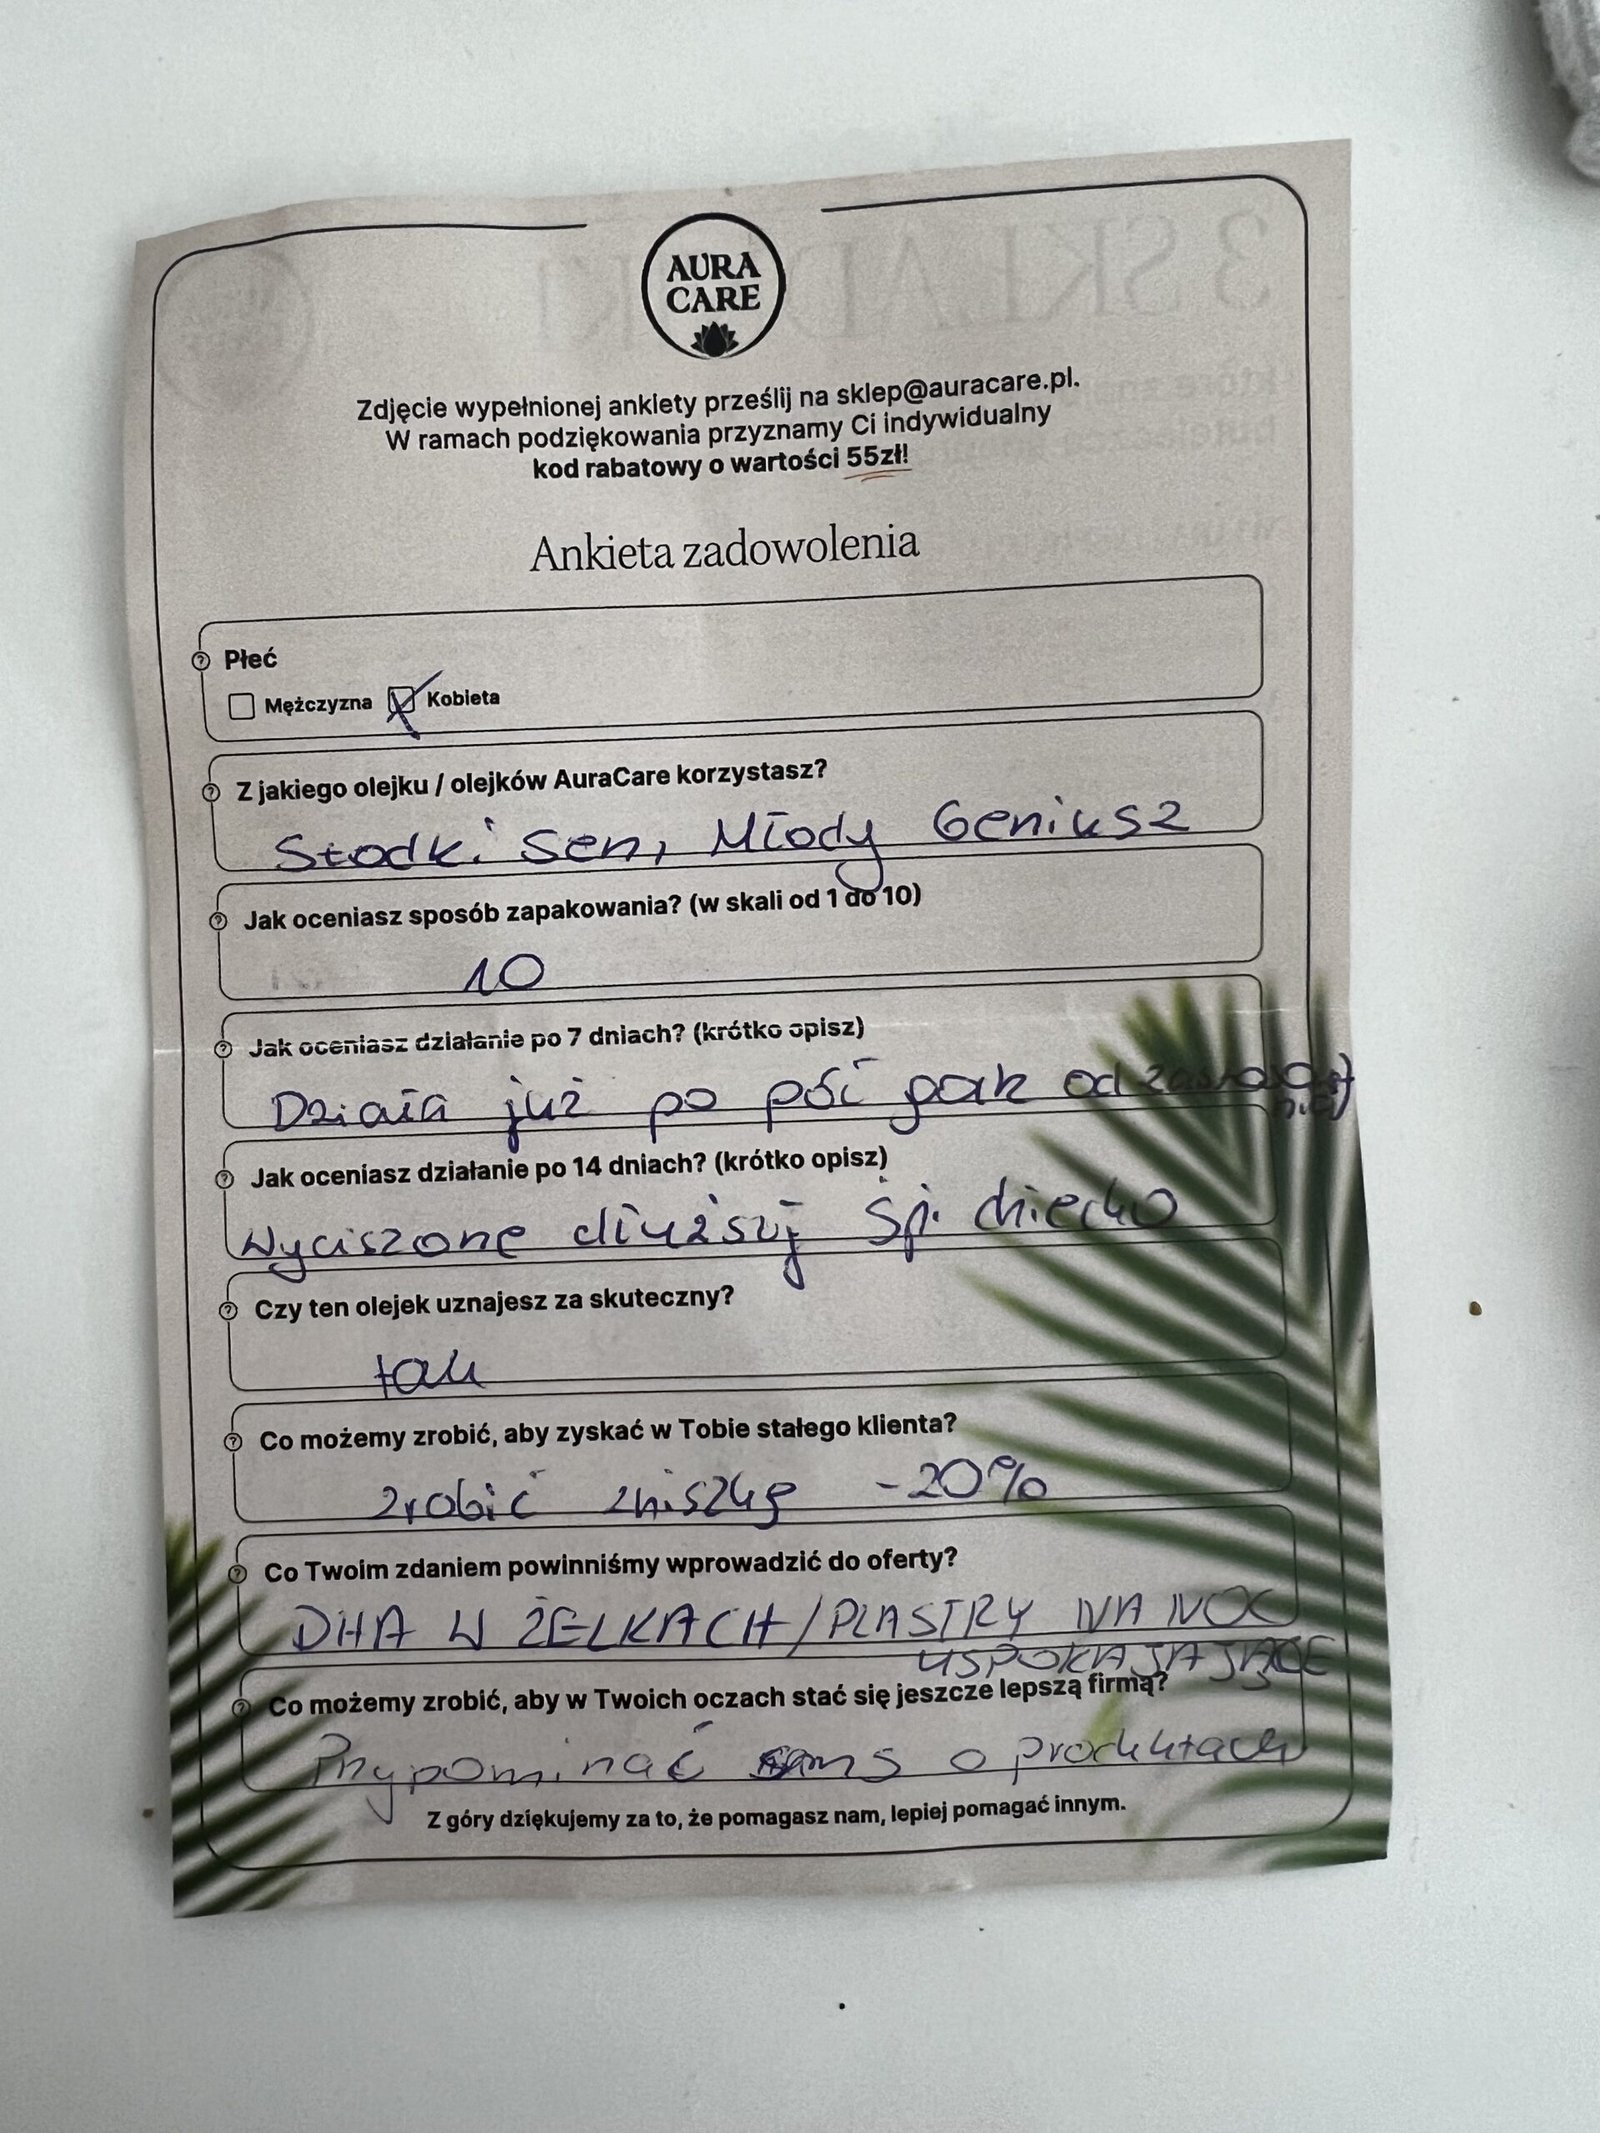 AURA
CARE
Zdjęcie wypełnionej ankiety prześlij na sklep@auracare.pl.
W ramach podziękowania przyznamy Ci indywidualny
kod rabatowy o wartości 55zł!
Ankieta zadowolenia
Płeć
Mężczyzna Kobieta
Z jakiego olejku / olejków AuraCare korzystasz?
Słodki sen, Młody Geniusz
Jak oceniasz sposób zapakowania? (w skali od 1 do 10)
10
Jak oceniasz działanie po 7 dniach? (krótko opisz)
Działa już po pół godz od
Jak oceniasz działanie po 14 dniach? (krótko opisz)
Wyciszone dłużej śpi dziecko
Czy ten olejek uznajesz za skuteczny?
tak
Co możemy zrobić, aby zyskać w Tobie stałego klienta?
zrobić zniszkę -20%
Co Twoim zdaniem powinniśmy wprowadzić do oferty?
DHA W ŻELKACH/PLASTRY NA NOC
USPOKAJAJĄCE
Co możemy zrobić, aby w Twoich oczach stać się jeszcze lepszą firmą?
Przypominać sms o produktach
Z góry dziękujemy za to, że pomagasz nam, lepiej pomagać innym.